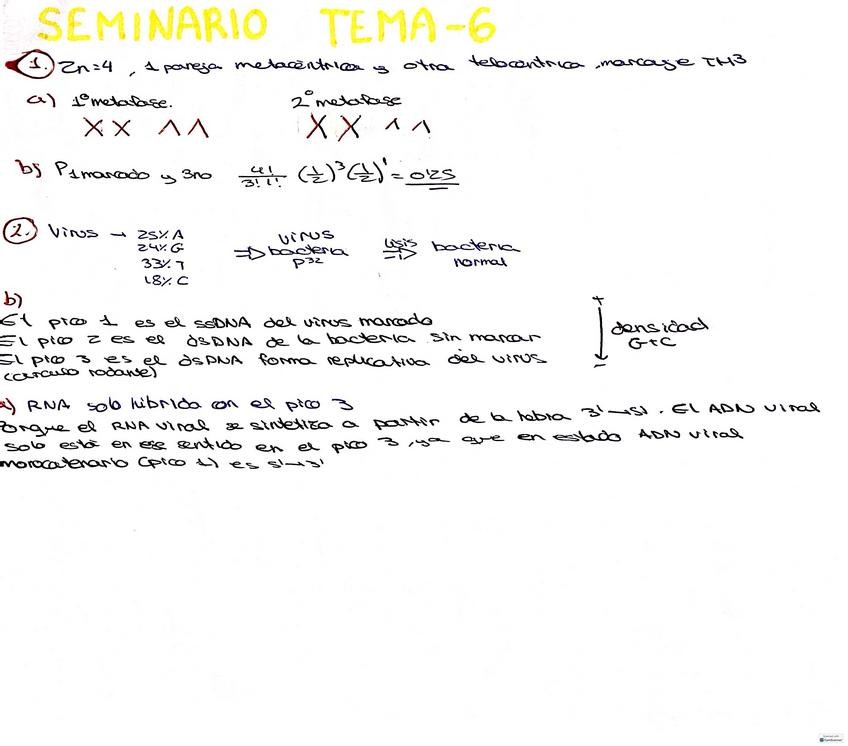 SEMINARIO TEMA-6
1. 2n=4, 1 pareja metacéntrica y otra telocéntrica, marcaje TH3
a) 1º metafase. 2º metafase
b) P 1 marcado y 3 no 4!/3!1! (1/2)³ (1/2)¹ = 0'25
2. Virus → 25% A
24% G
33% T
18% C
⇒ virus bacteria p32
lisis ⇒ bacteria normal
b)
El pico 1 es el ssDNA del virus marcado
El pico 2 es el dsDNA de la bacteria sin marcar
El pico 3 es el dsDNA forma replicativa del virus
(círculo rodante)
+ densidad G+C -
a) RNA solo hibrida con el pico 3
Porque el RNA viral se sintetiza a partir de la hebra 3'→5'. El ADN viral
solo está en ese sentido en el pico 3, ya que en estado ADN viral
monocatenario (pico 1) es 5'→3'